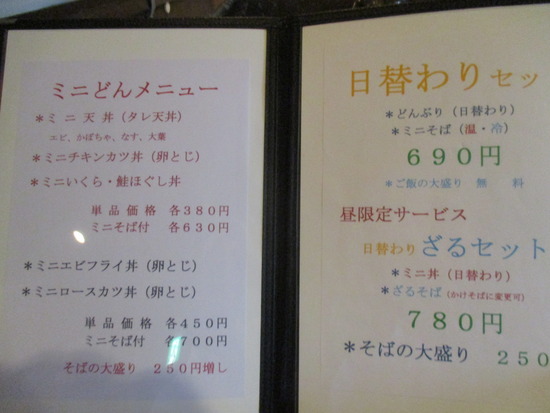 ミニどんメニュー
＊ミニ天丼（タレ天丼）
エビ、かぼちゃ、なす、大葉
＊ミニチキンカツ丼（卵とじ）
＊ミニいくら・鮭ほぐし丼
単品価格　各３８０円
ミニそば付　各６３０円
＊ミニエビフライ丼（卵とじ）
＊ミニロースカツ丼（卵とじ）
単品価格　各４５０円
ミニそば付　各７００円
そばの大盛り　２５０円増し
日替わりセッ
＊どんぶり（日替わり）
＊ミニそば（温・冷）
６９０円
＊ご飯の大盛り　無　料
昼限定サービス
日替わりざるセット
＊ミニ丼（日替わり）
＊ざるそば（かけそばに変更可）
７８０円
＊そばの大盛り　２５０